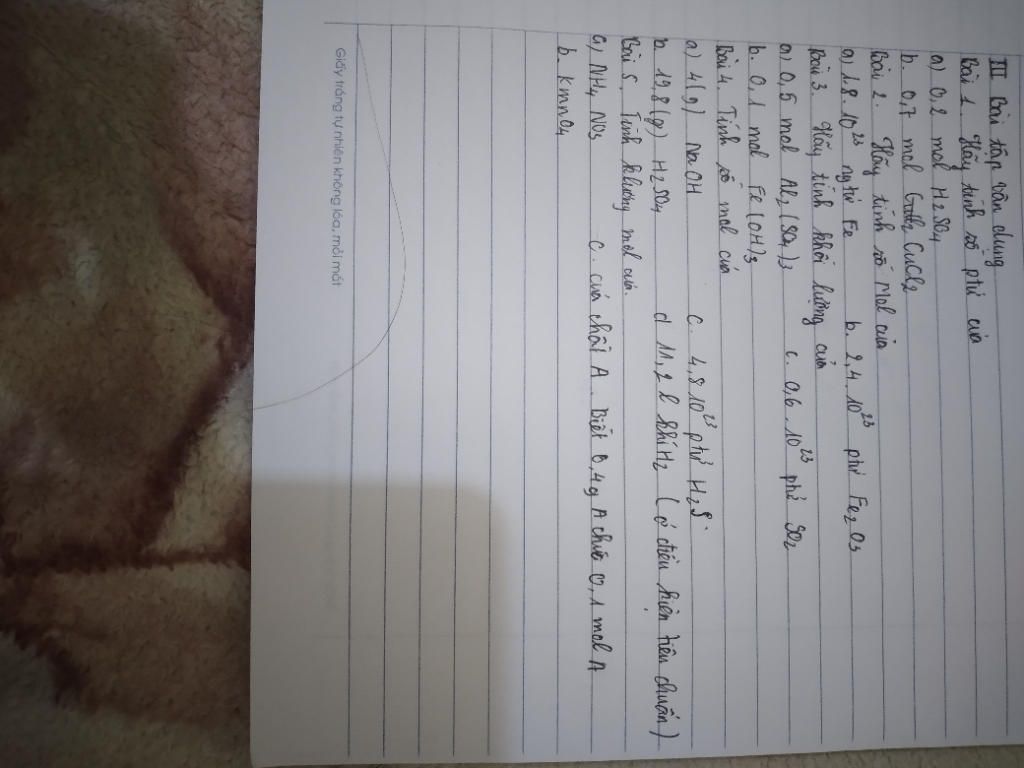 III Bài tập vận dụng
Bài 1. Hãy tính số ptử của
a) 0,2 mol H2SO4
b. 0,7 mol CuCl2
Bài 2. Hãy tính số mol của
a) 1,8.10^23 ngtử Fe b. 2,4.10^23 ptử Fe2O3
Bài 3. Hãy tính khối lượng của
a) 0,5 mol Al2(SO4)3 c. 0,6.10^23 ptử SO2
b. 0,1 mol Fe(OH)3
Bài 4. Tính số mol của
a) 4(g) NaOH c. 4,8.10^23 ptử H2S
b. 19,8(g) H2SO4 d 11,2 l khí H2 (ở điều kiện tiêu chuẩn)
Bài 5. Tính khương mol của.
a, NH4NO3 c. của chất A. Biết 6,4g A chứa 0,1 mol A
b. KmnO4
Giấy trắng tự nhiên không lóa, mỏi mắt